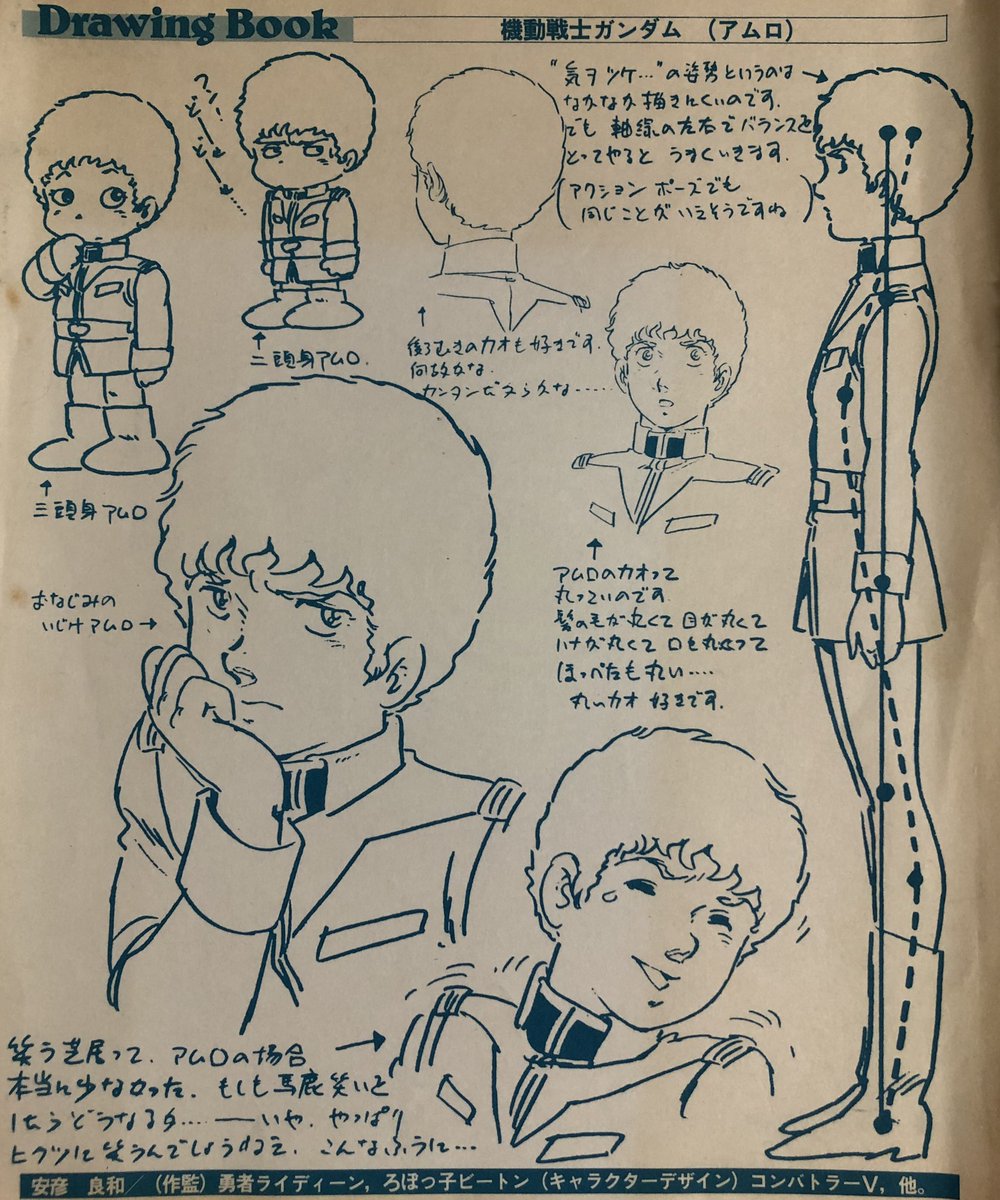 Drawing Book
機動戦士ガンダム (アムロ)
"気ヲツケ…"の姿勢というのは
なかなか描きにくいのです.
でも 軸線の左右でバランスを
とってやると うまくいきます.
(アクション ポーズでも
同じことがいえそうですね)
二頭身アムロ.
三頭身アムロ
後ろむきのカオも好きです.
何故かな.
カンタンだからかな……
アムロのカオって
丸っていのです.
髪の毛が丸くて 目が丸くて
ハナが丸くて 口も丸くって
ほっぺたも丸い….
丸いカオ 好きです.
おなじみの
いじけアムロ
笑う芝居って. アムロの場合
本当に少なかった. もしも馬鹿笑いと
したらどうなるか…. ——いや. やっぱり
ヒクツに笑うんでしょうねえ. こんなふうに…
安彦 良和/(作監)勇者ライディーン,ろぼっ子ビートン(キャラクターデザイン)コンバトラーV,他。